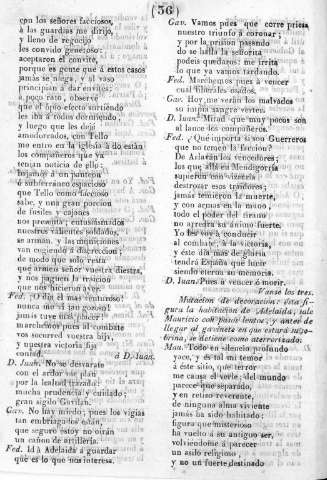 (36)
con los señores facciosos,
á las guardias me dirijo,
y lleno de regocijo
les convido generoso:
aceptaron el convite,
porque es cierto que á estos casos
jamás se niega, y al vaso
principian á dar envites:
á poco rato, observé
que el opio efecto surtiendo
les iba á todos durmiendo,
y luego que les dejé
amodorrados, con Tello
me entro en la iglesia á do están
los compañeros que ya
tenían noticia de ello:
bajamos á un panteon
ó subterraneo espacioso
que Tello como faccioso
sabe, y una gran porcion
de fusiles y cajones
nos presenta; entusiasmados
nuestros valientes soldados,
se arman, y las municiones
van cogiendo á discrecion:
de modo que solo resta
que armeno señor vuestra diestra,
y nos paguen la traicion
que nos hicieron ayer.
Fed. ¡O dia el mas venturoso!
nunca tuve tal gozo!
jamás tuve
marchemos pues al combate
vos socorred vuestra hija,
y nuestra victoria fija
contad. á D. Juan.
D. Juan. No se desvarate
con el ardor ese plan
por la lealtad trazado:
mucha prudencia y cuidado:
gran sigilo Garitan.
Gav. No hay miedo; pues los vigías
tan embriagados están,
que seguro estoy no oirán
un cañon de artillería.
Fed. Id á Adelaida á guardar
que es lo que nos interesa.
Gav. Vamos pues que corre priesa
nuestro triunfo á coronar;
y por la prision pasando
do se halla la señorita
podeis quedaros: me irrita
lo que ya vamos tardando.
Fed. Marchemos pues á vencer
cual liberales osados.
Gav. Hoy me verán los malvados
su impia sangre verter.
D. Juan. Mirad que muy pocos son
al lance los compañeros.
Fed. ¿Qué importa si son Guerreros
que no temen la faccion?
De Arlaban los vencedores;
los que allá en Mendigorría
supieron con vizarría
destrozar esos traidores;
jamás temieron la muerte,
y con armas en la mano,
todo el poder del tirano
no arredra su ánimo fuerte.
Yo les voy á conducir
al combate, á la victoria,
y este dia mas de gloria
tendrá España que lucir
siendo eterna su memoria.
D. Juan. Pues á vencer ó morir.
Vanse los tres.
Mutacion de decoracion: ésta figura la habitacion de Adelaida; sale Mauricio con pasos lentos, y antes de llegar al gavinete en que estará su sobrina, se detiene como aterrorizado.
Mau. Todo en silencio profundo
yace, y es tal mi temor
á este sitio, que terror
me causa el verle; del mundo
parece que separado,
y en retiro reverente,
de ninguna alma viviente
jamás ha sido habitado:
figura que misterioso
ha vuelto á su antiguo ser,
volviéndome á parecer
un asilo religioso,
y no un fuerte destinado